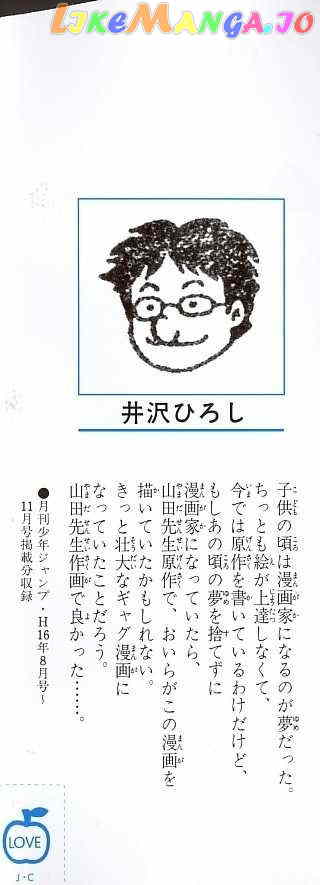 LIKEMANGA.IO
井沢ひろし
子供の頃は漫画家になるのが夢だった。
ちっとも絵が上達しなくて、
今では原作を書いているわけだけど、
もしあの頃の夢を捨てずに
漫画家になっていたら、
山田先生原作で、おいらがこの漫画を
描いていたかもしれない。
きっと壮大なギャグ漫画に
なっていたことだろう。
山田先生作画で良かった……。
●月刊少年ジャンプ・H16年8月号〜
11月号掲載分収録
LOVE
J・C